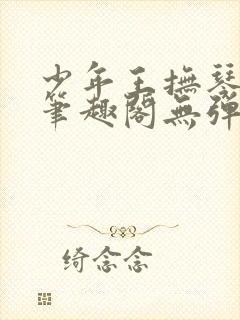 少年王撫琴
筆趣閣無彈
绮念念